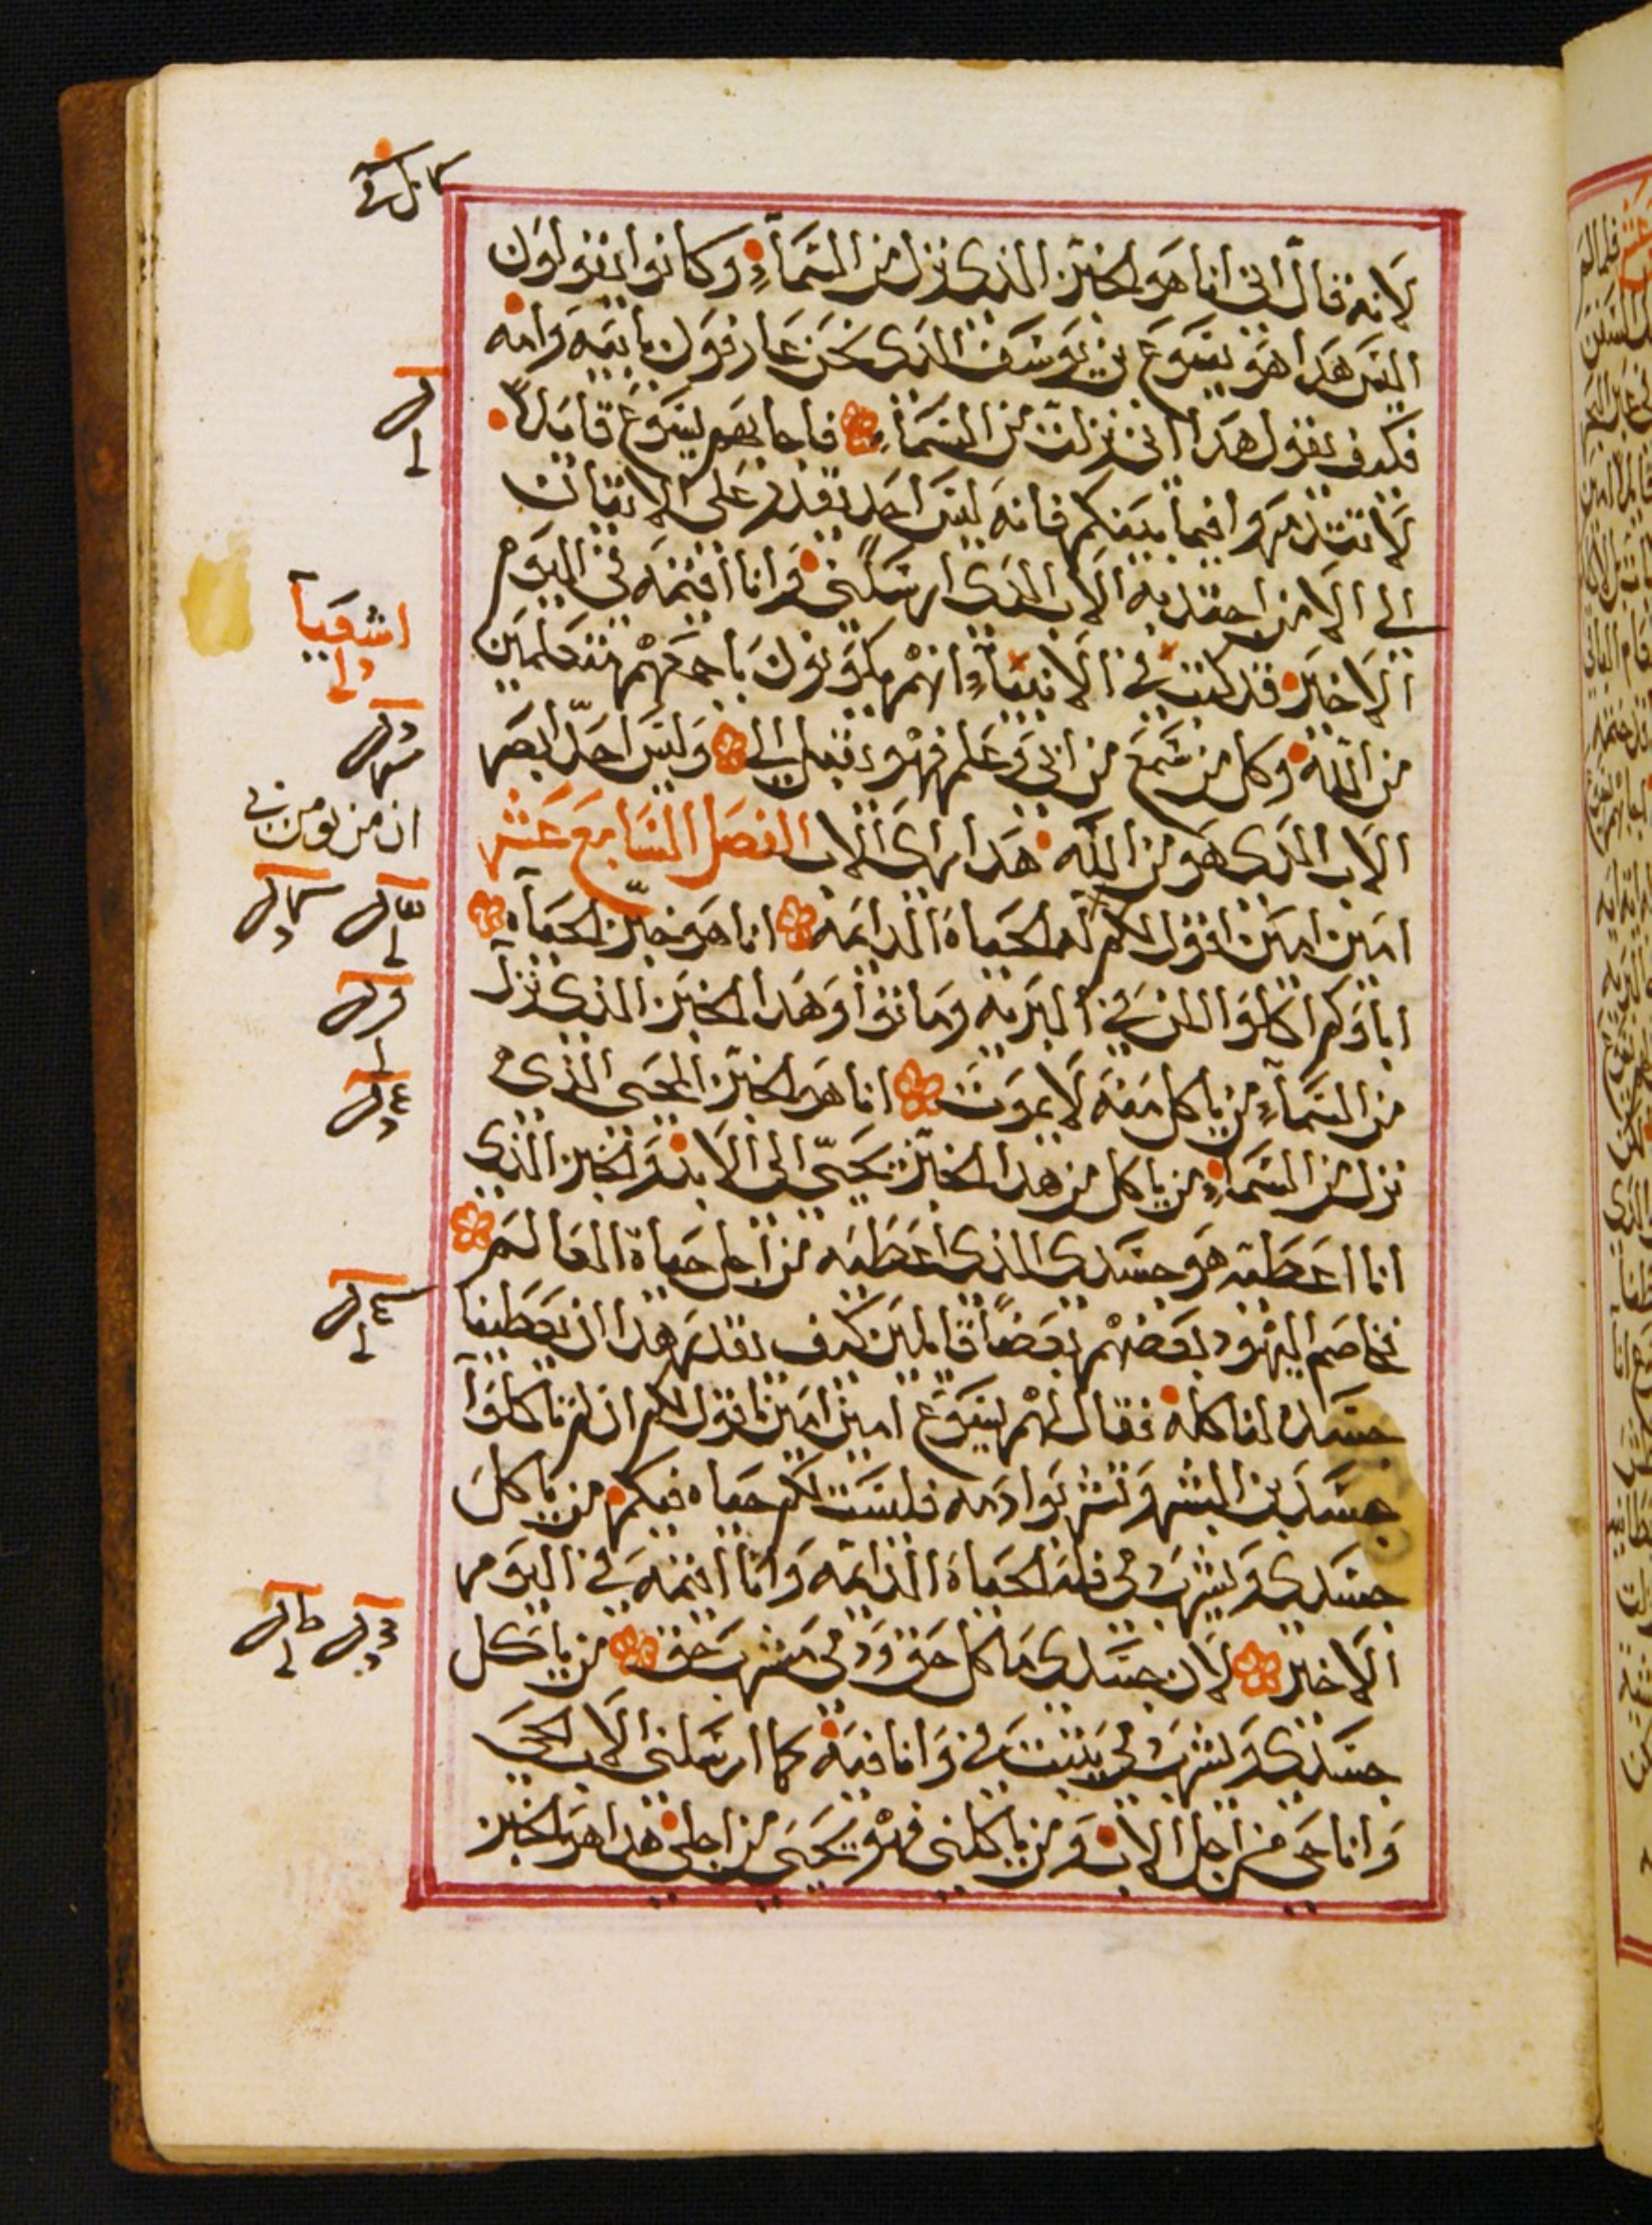 لانه قال اني انا هو الخبز الذي نزل من السماء وكانوا يقولون
اليس هدا هو يسوع بن يوسف الدي نحن عارفون بابيه وامه
فكيف يقول هدا اني نزلت من السماء فاجابهم يسوع قايلاً
لا تتدمروا فيما بينكم فانه ليس احد يقدر على الاتيان
الي الا من اجتدبه الاب الدي ارسلني وانا اقيمه في اليوم
الاخير قد كتب في الانبياء انهم يكونون باجمعهم متعلمين
من الله وكل من سمع من ابي وعلم فهو يقبل الي وليس احد ابصر
الاب الدي هو من الله هدا راى الاب الفصل السابع عشر
امين امين اقول لكم له الحياة الدايمه انا هو خبز الحياه
اباوكم اكلوا المن في البريه وماتوا وهدا الخبز الذي نزل
من السماء من ياكل منه لا يموت انا هو الخبز المحيي الذي
نزل من السماء من ياكل من هدا الخبز يحيى الى الابد والخبز الذي
انا اعطيه هو جسدي الذي اعطيه من اجل حياة العالم
تخاصم اليهود بعضهم بعضاً قايلين كيف يقدر هدا ان يعطينا
جسده لناكله فقال لهم يسوع امين امين اقول لكم ان لم تاكلوا
جسد بن البشر وتشربوا دمه فليست لكم حياه فيكم من ياكل
جسدي ويشرب دمي فله الحياة الدايمه وانا اقيمه في اليوم
الاخير لان جسدي ماكل حق ودمي مشرب حق من ياكل
جسدي ويشرب دمي يثبت في وانا فيه كما ارسلني الاب الحي
وانا حي من اجل الاب ومن ياكلني فهو يحيى من اجلي هدا هو الخبز
اشعيا
ان من يومن بي